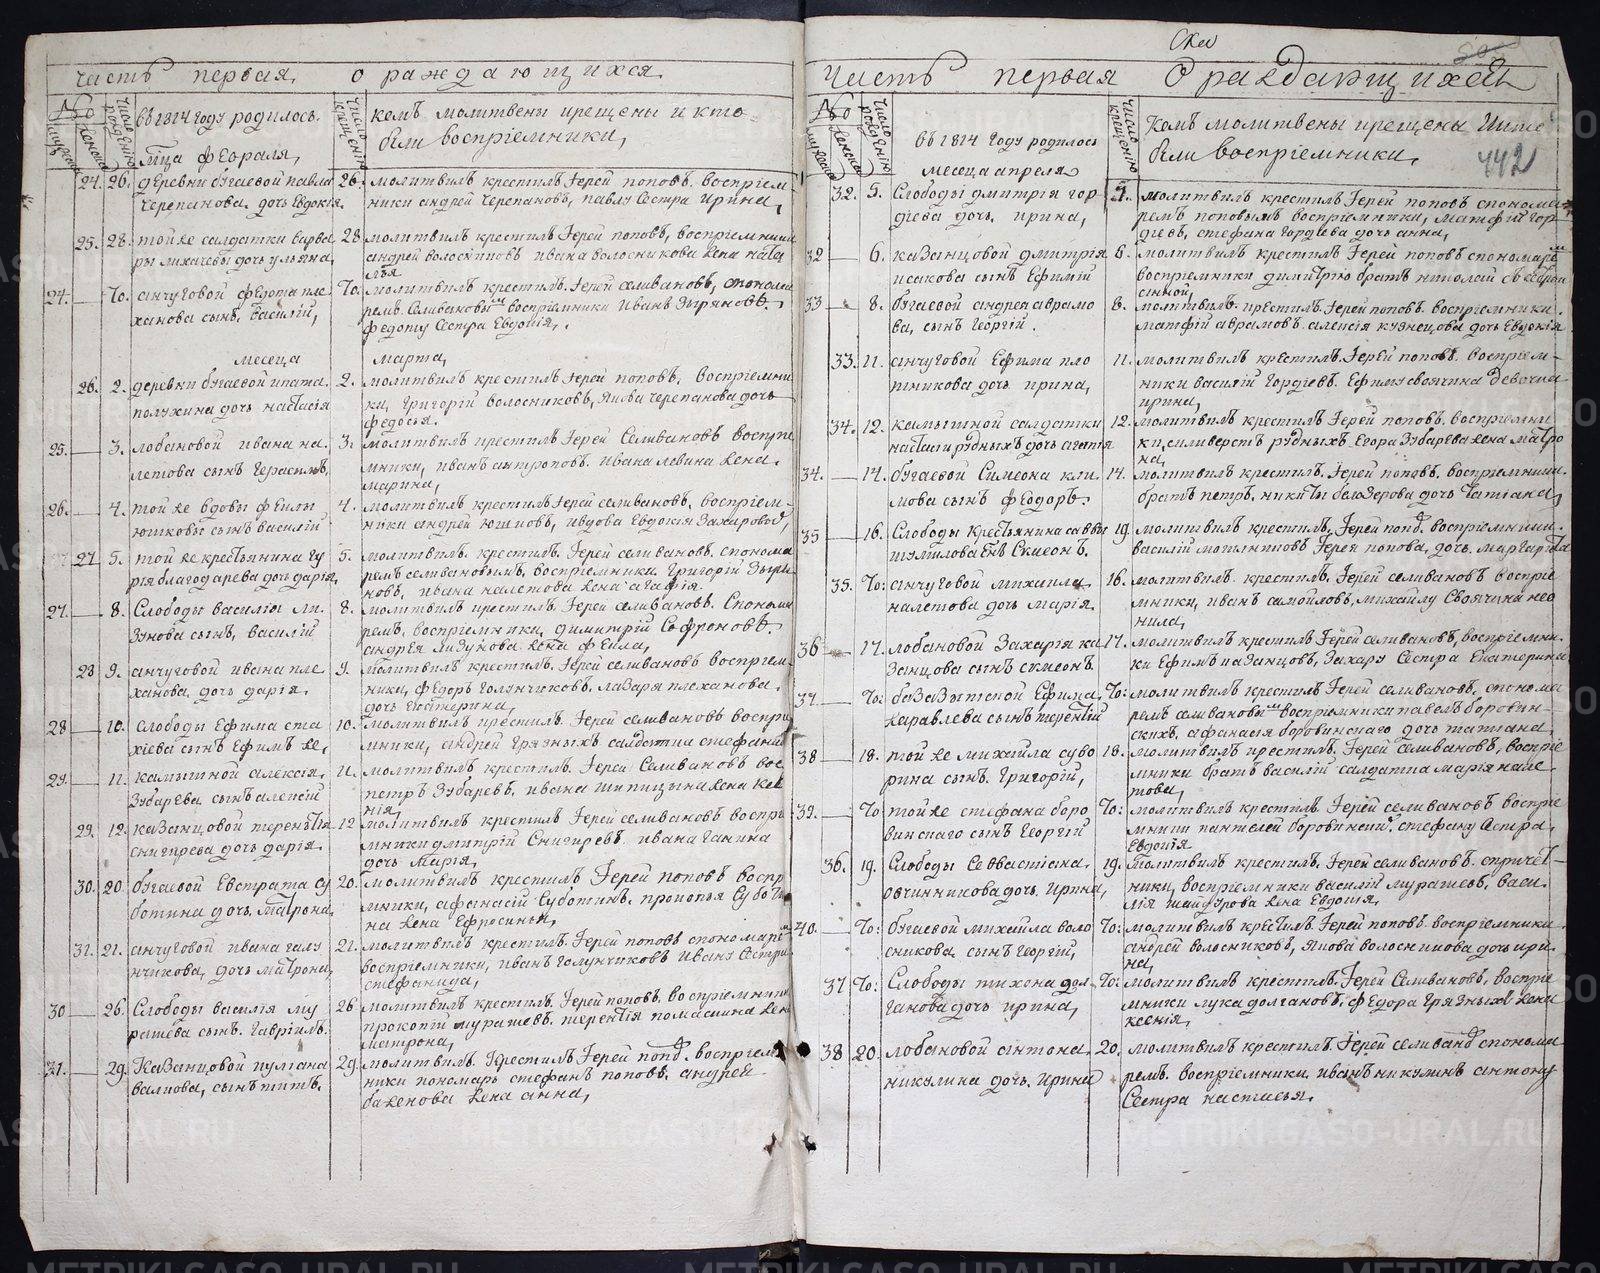 часть первая, о раждающихся.
№
мужеска
женска
число рожденія
въ 1814 году родилось.
мца февраля,
число крещенія
кемъ молитвены крещены и кто
были воспріемники,
24. 26. деревни бугаевой павла
Черепанова. дочь Евдокія.
26. молитвилъ крестилъ Іерей поповъ. воспріем
ники андрей Черепановъ, павлу Сестра Ирина,
25. 28. той же салдатки варва
ры лихачевы дочь ульяна,
28 молитвилъ крестилъ Іерей поповъ, воспріемники
андрей волосниковъ ивана волосникова жена ната
лья
24. То. анчуговой федота пле
ханова сынъ. василій,
То. молитвилъ крестилъ. Іерей селивановъ, спонома
ремъ. Селивановымъ воспріемники Иванъ Зыряновъ.
федоту Сестра Евдокія,
месеца марта,
26. 2. деревни бугаевой ипата.
полухина дочь настасія
2. молитвилъ крестилъ Іерей поповъ. воспріемни
ки, григорій волосниковъ, якова черепанова дочь
федосья.
25. 3. лобановой ивана на.
летова сынъ Герасимъ,
3. молитвилъ крестилъ Іерей Селивановъ воспріе
мники, иванъ антроповъ. ивана левина жена.
марина,
26. 4. той же вдовы феклы
юшковы сынъ василій
4. молитвилъ крестилъ Іерей селивановъ. воспріем
ники андрей юшковъ, ивдова Евдокія Захаровой,
27 5. той же крестьянина гу
рія благодарева дочь дарія,
5. молитвилъ. крестилъ. Іерей селивановъ. спонома
ремъ селивановымъ. воспріемники. григорій Зыря
новъ, ивана налетова жена агафія.
27. 8. Слободы василія ли.
Зунова сынъ, василій
8. молитвилъ крестилъ. Іерей селивановъ. Спонома
ремъ. воспріемники, димитрій Софроновъ.
андрея лизунова. жена фекла,
28 9. анчуговой ивана пле
ханова, дочь дарія.
9. молитвилъ крестилъ. Іерей селивановъ воспріем
ники, федоръ голунчиковъ, лазаря плеханова.
дочь Екатерина,
28 10. слободы Ефима ста
хіева сынъ Ефимъ же,
10. молитвилъ крестилъ. Іерей селивановъ воспріе
мники, андрей грязныхъ салдатка стефанида
29. 11. камышной алексія,
Зубарева сынъ алексій
11. молитвилъ крестилъ. Іерей Селивановъ вос
петръ Зубаревъ, ивана шипицына жена ксе
нія,
29. 12. казанцовой терентія
снигирева дочь дарія.
12 молитвилъ крестилъ Іерей селивановъ воспріе
мники дмитрій Снигиревъ. ивана ганина
дочь Марія,
30. 20. бугаевой Евстрата су
ботина дочь. матрона.
20. молитвилъ крестилъ Іерей поповъ воспріе
мники, афанасій суботинъ. прокопья субо
на жена Ефросинья,
31. 21. анчуговой ивана голу
нчикова, дочь матрона,
21. молитвилъ крестилъ Іерей поповъ спономаремъ
воспріемники, иванъ голунчиковъ ивану Сестра
стефанида,
30 26. Слободы василія му
рашева сынъ. гавріилъ.
26 молитвилъ крестилъ. Іерей поповъ. воспріемники
прокопій мурашевъ. терентія помаскина жена
матрона,
31. 29. Казанцовой
валкова, сынъ титъ.
29. молитвилъ. Крестилъ. Іерей попов. воспріем
ники пономарь стефанъ поповъ. андрея
баженова жена анна,
часть первая О раждающихся
442
№
мужеска
женска
число рожденію
въ 1814 году родилось
месеца апреля
число крещенію
Кемъ молитвены крещены Икто
были воспріемники,
32. 5. Слободы дмитрія гор
діева дочь. ирина,
5. молитвилъ крестилъ Іерей поповъ спонома
ремъ поповымъ воспріемники, матфій гор
діевъ, стефана гордіева дочь анна,
32 6. казанцовой дмитрія
исакова сынъ Ефимій
6. молитвилъ крестилъ Іерей поповъ спономаремъ
воспріемники димитрію братъ николай
33 8. бугаевой андрея аврамо
ва, сынъ георгій.
8. молитвилъ. крестилъ. Іерей поповъ. воспріемники.
матфій аврамовъ. алексія кузнецова дочь Евдокія
33. 11. анчуговой Ефима пло
тникова дочь ирина,
11. молитвилъ крестилъ. Іерей поповъ. воспріем
ники василій гордіевъ. Ефиму своячина девочка
ирина,
34. 12. камышной салдатки
настасьи рудныхъ дочь агатія
12. молитвилъ крестилъ Іерей поповъ. воспріемни
ки, силиверстъ рудныхъ. Егора Зубарева жена матро
на,
34. 14. бугаевой Симеона кли
мова сынъ феодоръ.
14. молитвилъ крестилъ. Іерей поповъ. воспріемники.
братъ петръ. никиты белозерова дочь татіана,
35 16. Слободы крестьянина саввы
шумилова сынъ Симеонъ.
19. молитвилъ крестилъ. Іерей попов. воспріемники.
василій Іерея попова, дочь. Маргарита
35. То: анчуговой михаила
налетова дочь марія.
16. молитвилъ. крестилъ. Іерей селивановъ воспріе
мники, иванъ самойловъ, михаилу Своячина нео
нила,
36 17. лобановой Захарія ка
занцова сынъ симеонъ.
17. молитвилъ крестилъ Іерей селивановъ, воспріемни
ки Ефимъ казанцовъ, Захару Сестра Екатерина
37. То: Ефима,
каравлева сынъ терентій
То: молитвилъ крестилъ Іерей селивановъ, спонома
ремъ селивановымъ воспріемники павелъ боровин
скихъ. афанасія боровинскаго дочь татиана.
38 18. той же михаила суво
рина сынъ. григорій,
18. молитвилъ крестилъ. Іерей селивановъ, воспріе
мники братъ василій салдатка марія нале
това,
39. То той же стефана боро
винскаго сынъ георгій
То: молитвилъ крестилъ. Іерей селивановъ воспріе
мники пантелей боровинский. стефану сестра.
Евдокія
36. 19. Слободы Севастіана.
овчинникова дочь. ирина,
19. молитвилъ крестилъ. Іерей селивановъ. спричет
ники, воспріемники василій мурашевъ, васи
лія шайдурова жена Евдокія,
40. То: бугаевой михайла воло
сникова. сынъ георгій,
То: молитвилъ крестилъ. Іерей поповъ. воспріемники
андрей волосниковъ, якова волосникова дочь ири
на,
37 То: Слободы тихона дол
ганова дочь ирина,
То: молитвилъ крестилъ. Іерей Селивановъ, воспріе
мники лука долгановъ. федора грязныхъ жена
ксенія,
38 20. лобановой антона.
никулина дочь. Ирина
20. молитвилъ крестилъ. Іерей селиванов спонома
ремъ. воспріемники. иванъ никулинъ антону
Сестра настасья.
METRIKI.GASO-URAL.RU